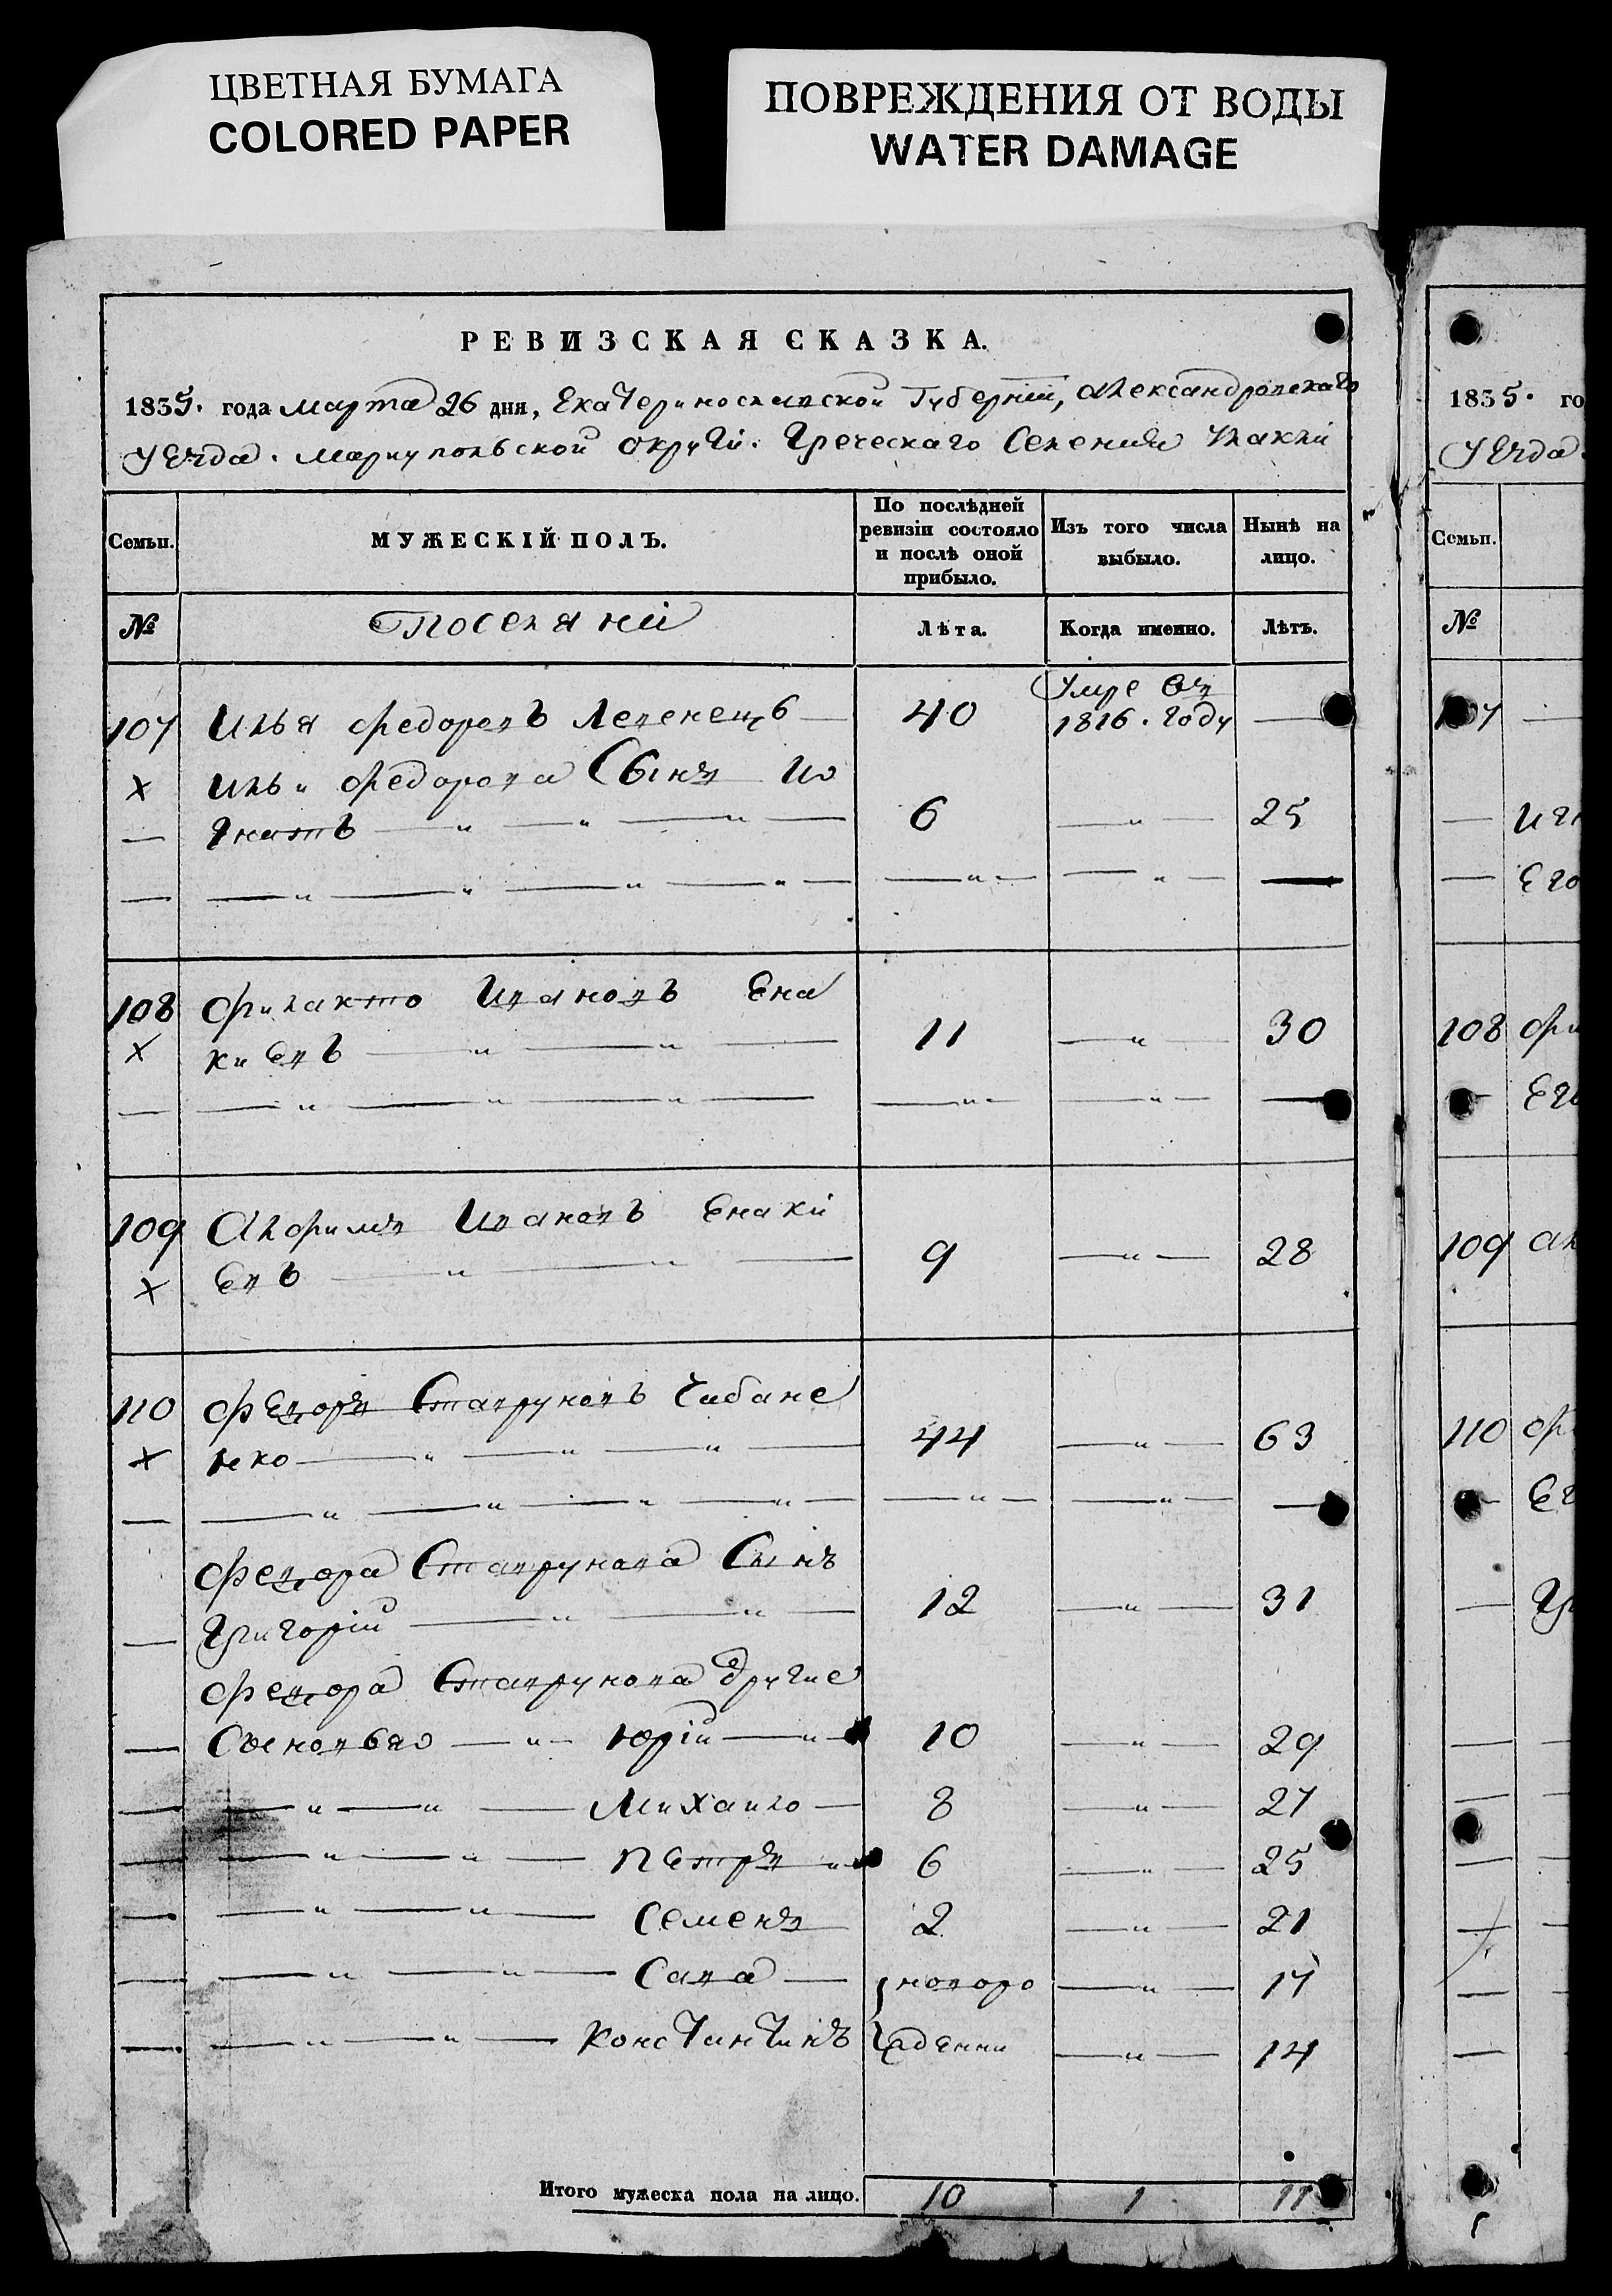 ЦВЕТНАЯ БУМАГА
COLORED PAPER
ПОВРЕЖДЕНИЯ ОТ ВОДЫ
WATER DAMAGE
РЕВИЗСКАЯ СКАЗКА.
1835. года марта 26 дня, Екатеринославской Губерніи, Александровскаго
Уезда. Мариупольской округи. Греческаго Селения
Семьи. МУЖЕСКІЙ ПОЛЪ. По послѣдней ревизіи состояло и послѣ оной прибыло. Изъ того числа выбыло. Нынѣ на лицо.
№ Поселяни Лѣта. Когда именно. Лѣтъ.
Умре въ
107 Илья Федоровъ 40 1816. году —
х Ильи Федорова Сынъ Иг
— Гнатъ — " — " — " — 6 — " — 25
— — " — " — " — " — — " — — " — —
108 Филакто Ивановъ Ена
х киевъ — " — " — 11 — " — 30
— — " — " — " — — " — — " — —
109 Ахфимъ Ивановъ Енаки
х евъ — " — " — 9 — " — 28
110 Федоръ Ставруновъ Чабане
х нко — " — " — " — 44 — " — 63
— — " — " — " — " — — " — — " — —
Федора Ставрунова Сынъ
— Григорій — " — " — 12 — " — 31
Федора Ставрунова другие
— Сыновья — " — Юрій — " — 10 — " — 29
— — " — " — Михаило — 8 — " — 27
— — " — " — Петръ — " 6 — " — 25
— — " — " — Семенъ — 2 — " — 21
— — " — " — Сава — новоро — " — 17
— — " — " — Константинъ жденни — " — 14
Итого мужеска пола на лицо. 10 1 11
1835. го
Уезда.
Семьи.
№
107 —
— Игн
— Его
108 Фи
— Его
109 Ах
110 Ф
— Ег
— Гр